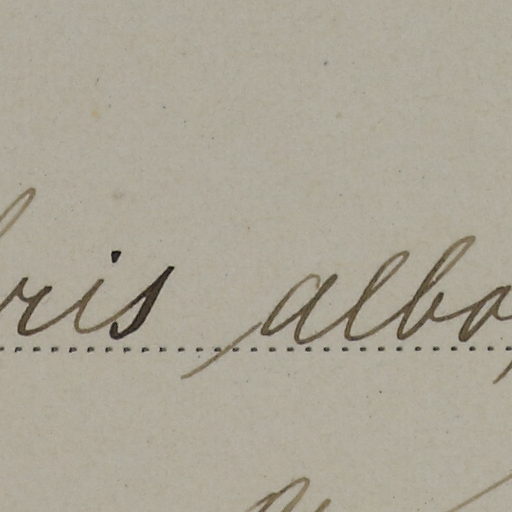 ris albo